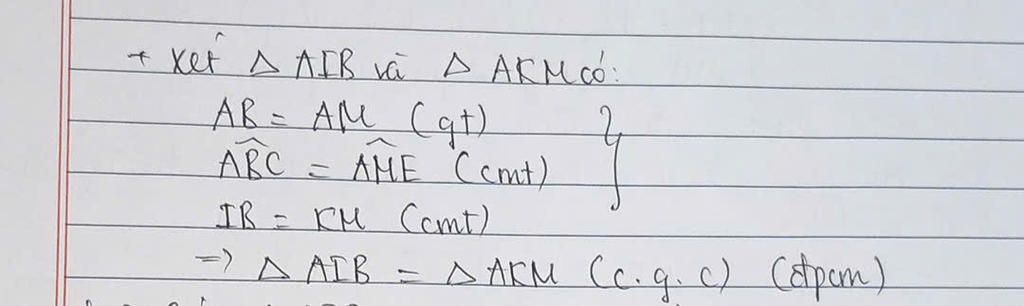 + Xét △ AIB và △ AKM có:
AB = AM (gt)
$\widehat{ABC}$ = $\widehat{AME}$ (cmt)
IB = KM (cmt)
=> △ AIB = △ AKM (c.g.c) (đpcm)